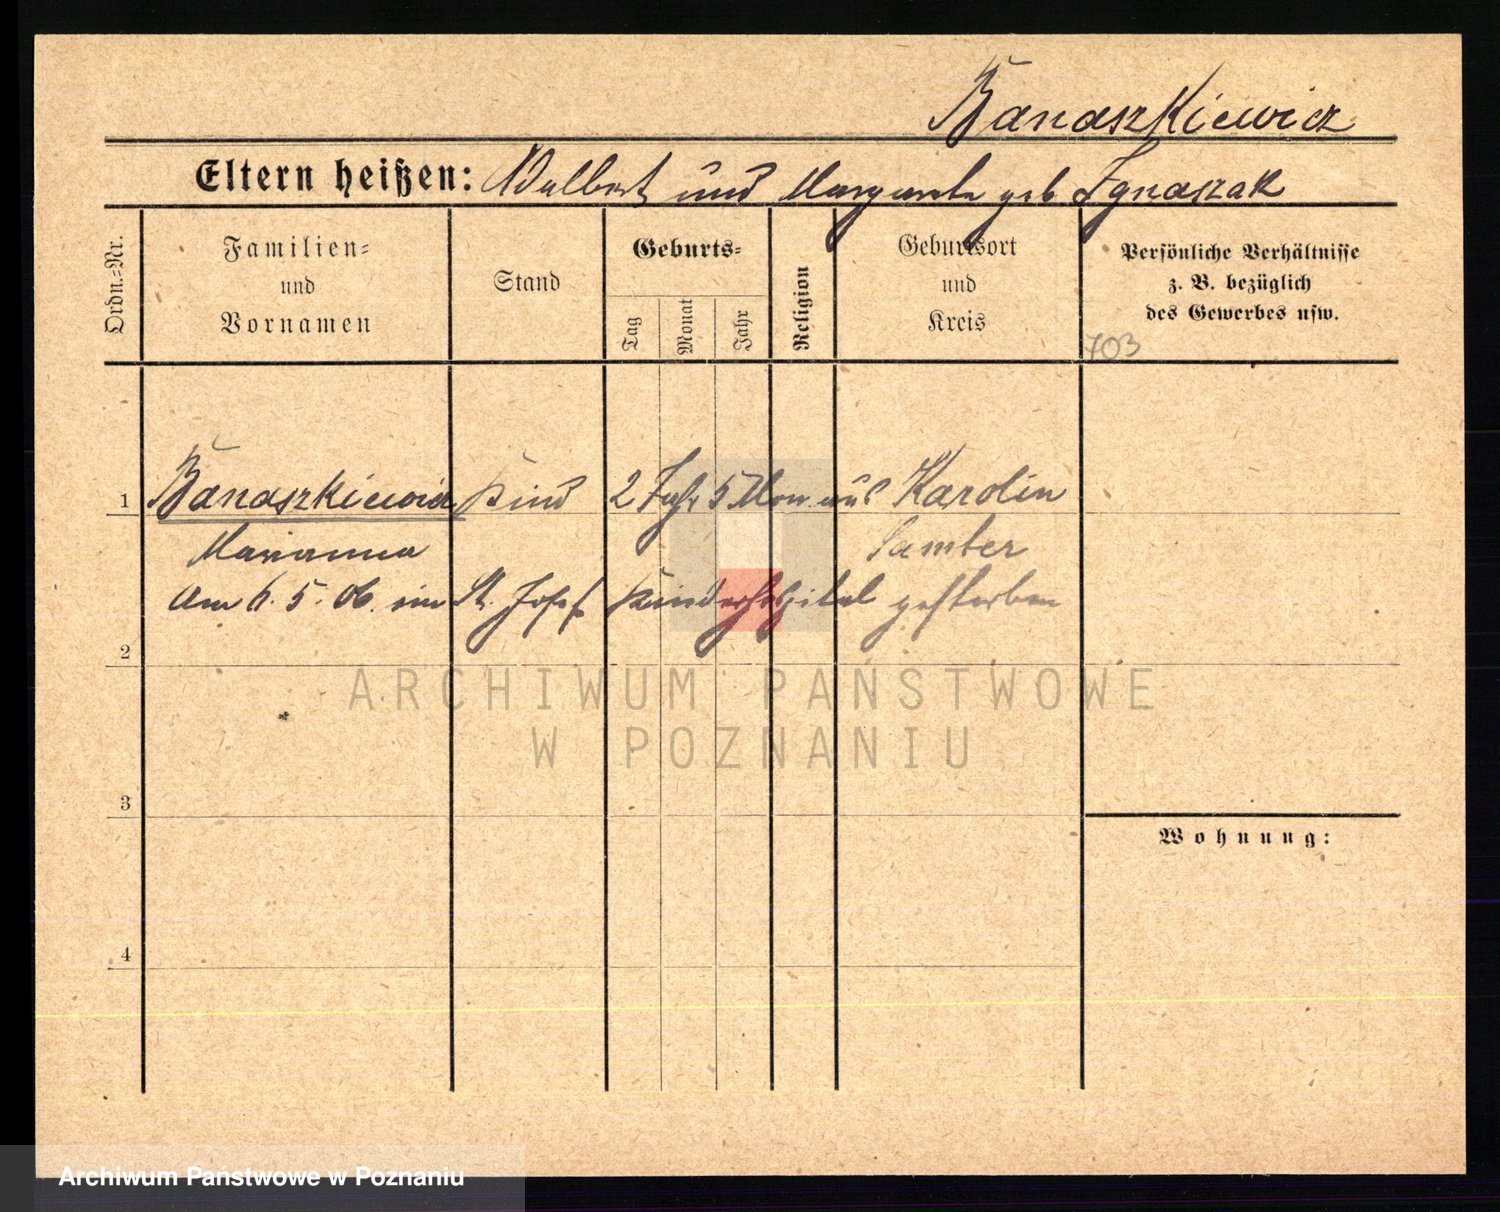 Banaszkiewicz
Eltern heißen: Adalbert und Margarete geb. Ignaszak
Ordn.=Nr.
Familien=
und
Vornamen
Stand
Geburts=
Tag
Monat
Jahr
Religion
Geburtsort
und
Kreis
Persönliche Verhältnisse
z. B. bezüglich
des Gewerbes usw.
703
1 Banaszkiewicz Kind 2 Jahr 5 Mon aus Karolin
Marianna Samter
am 6. 5. 06. im St. Josef Kinderhospital gestorben
2
3
4
Wohnung:
ARCHIWUM PAŃSTWOWE
W POZNANIU
Archiwum Państwowe w Poznaniu